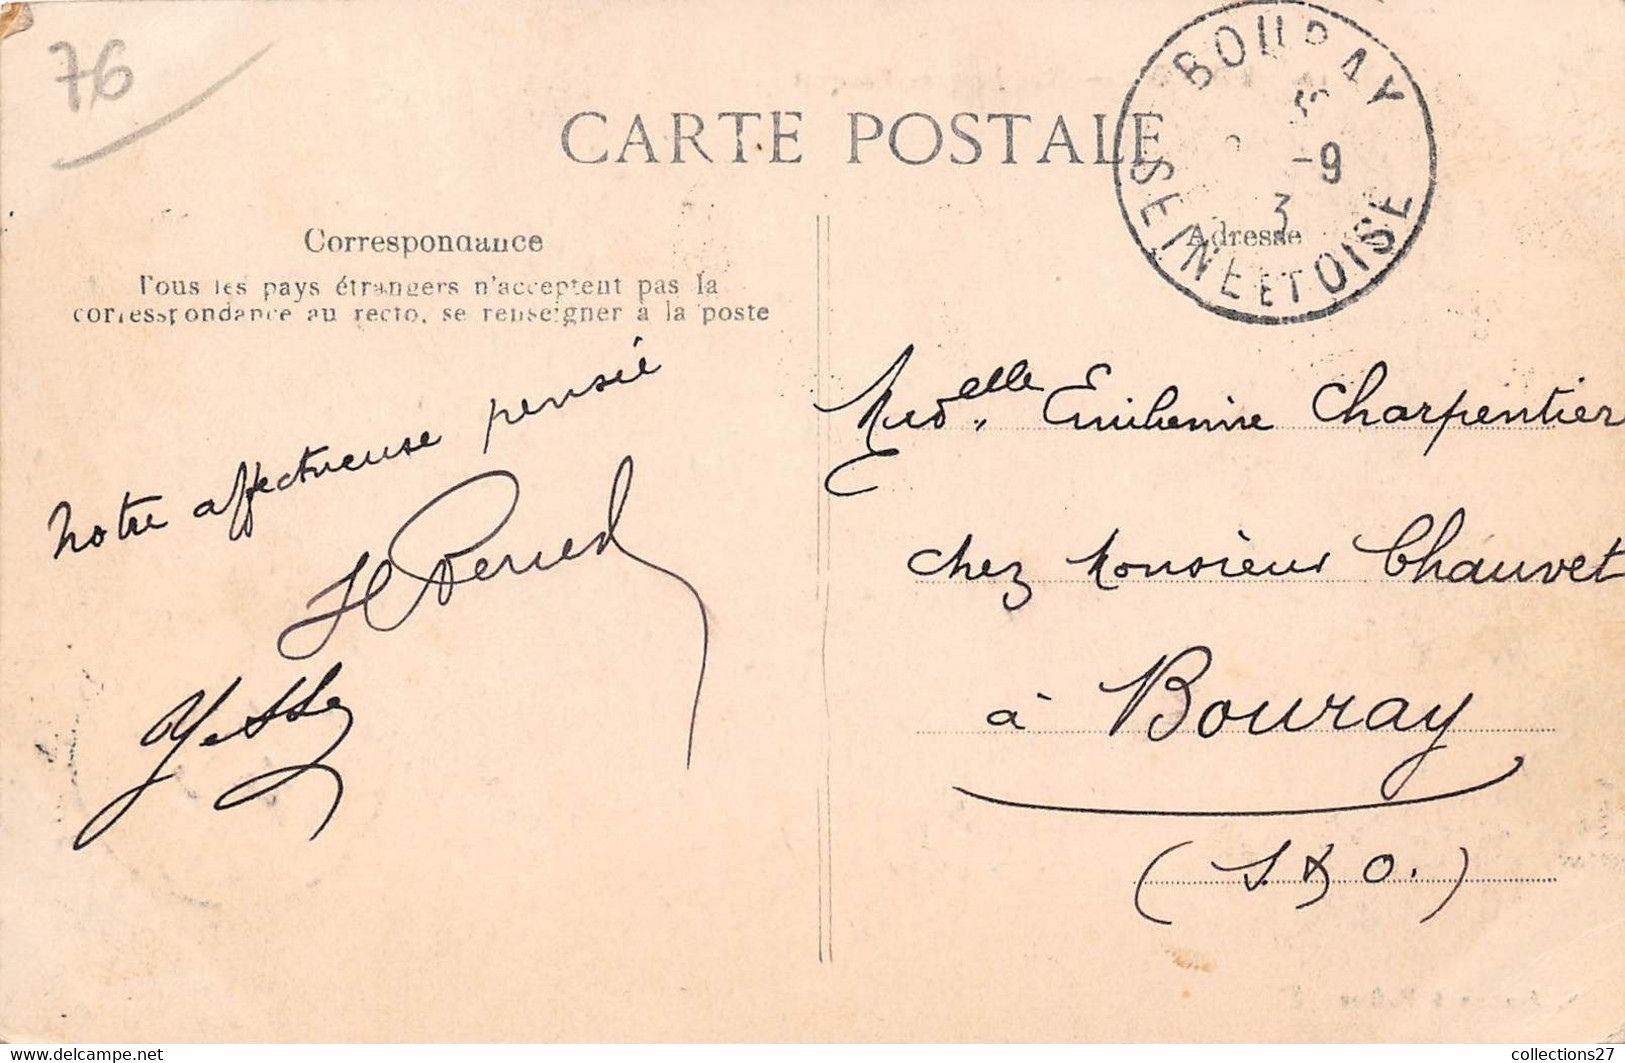 76
CARTE POSTALE
BOURAY
-9
3
SEINE ET OISE
Correspondance
Tous les pays étrangers n'acceptent pas la
correspondance au recto, se renseigner à la poste
Adresse
Notre affectueuse pensée
Melle Emilienne Charpentier
chez Monsieur Chauvet
à Bouray
(S. & O.)
collections27